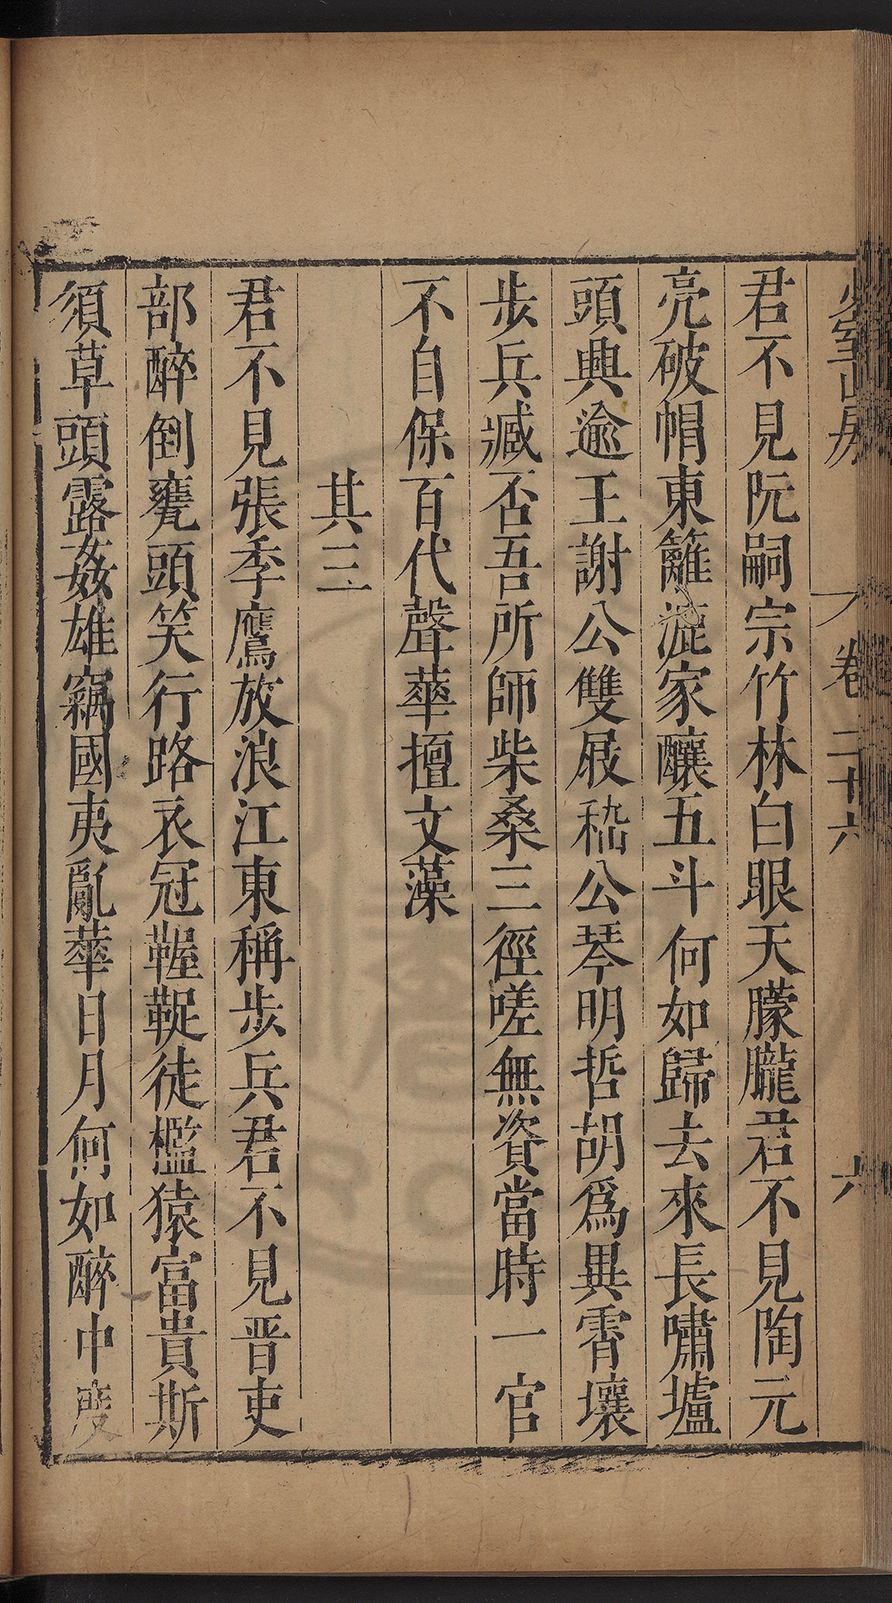 少室山房
卷二十六
六
君不見阮嗣宗竹林白眼天朦朧君不見陶元
亮破帽東籬漉家釀五斗何如歸去來長嘯壚
頭興逾王謝公雙屐嵇公琴明哲胡爲異霄壤
步兵臧否吾所師柴桑三徑嗟無資當時一官
不自保百代聲華擅文藻
其三
君不見張季鷹放浪江東稱步兵君不見晋吏
部醉倒甕頭笑行路衣冠齷齪徒檻猿富貴斯
須草頭露姦雄竊國夷亂華日月何如醉中度